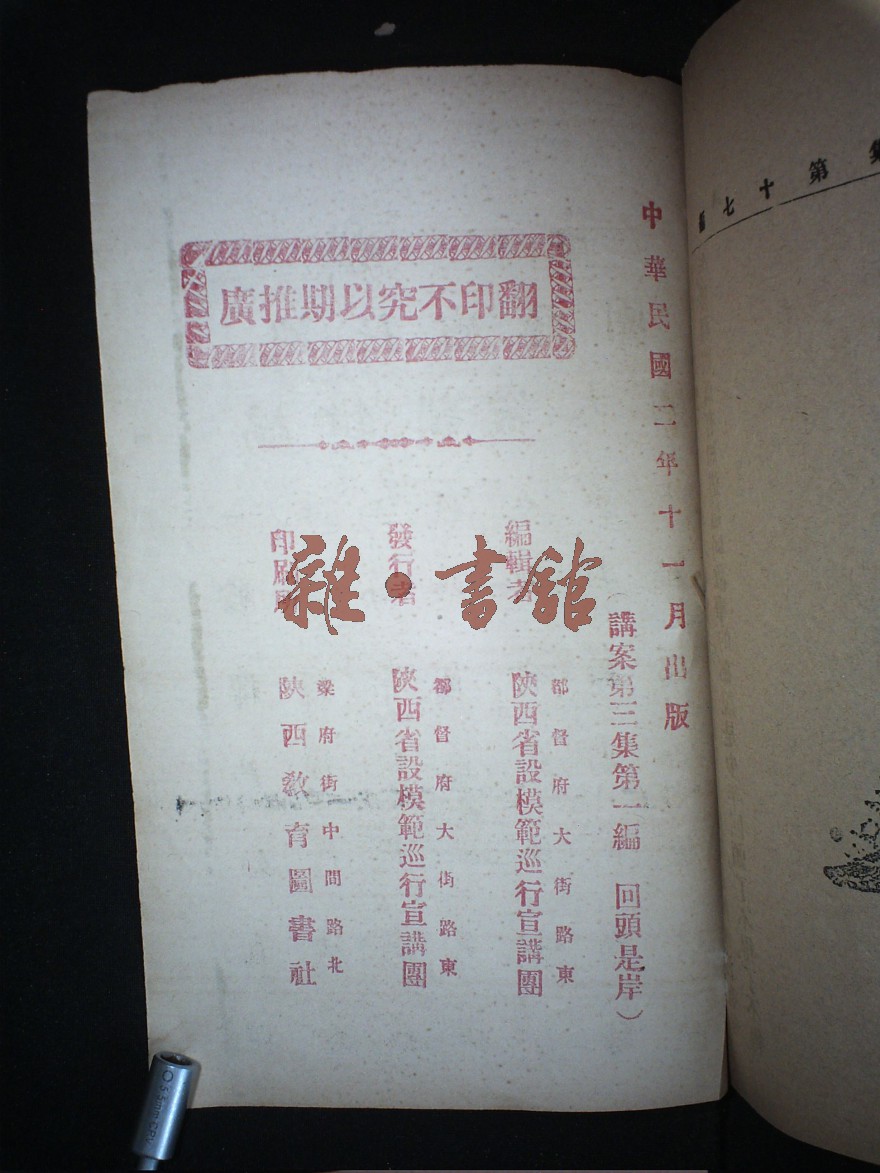 第十七編
中華民國二年十一月出版
（講案第三集第一編　回頭是岸）
翻印不究以期推廣
編輯者
都督府大街路東
陝西省設模範巡行宣講團
發行者
都督府大街路東
陝西省設模範巡行宣講團
印刷
梁府街中間路北
陝西教育圖書社
雜·書館